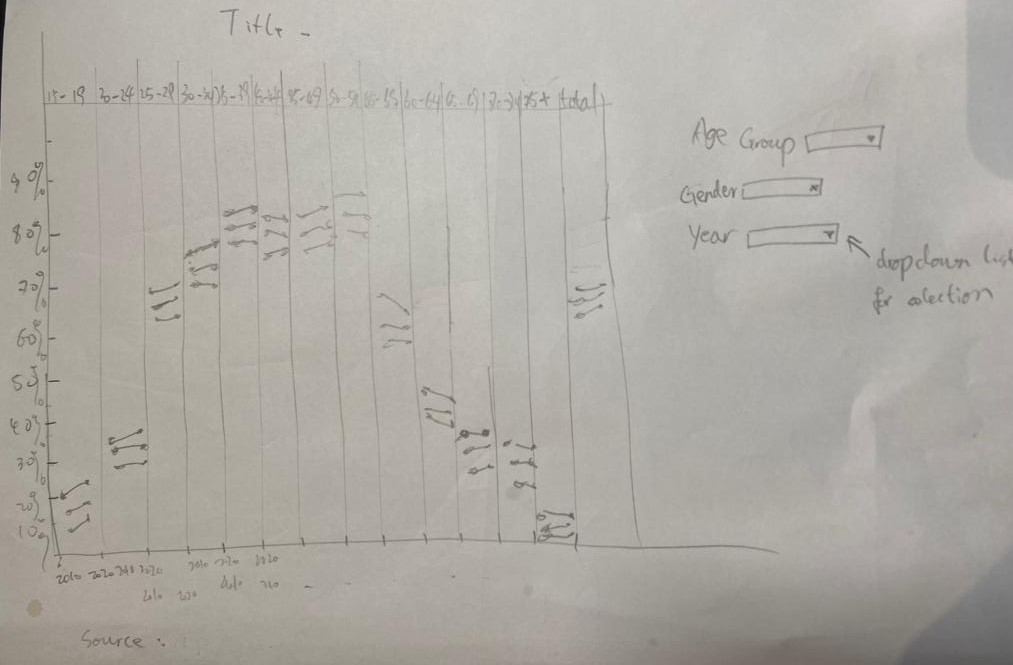 Title -
15-19 20-24 25-29 30-34 35-39 45-49 50-54 60-64 75+ total
90%
80%
70%
60%
50%
40%
30%
20%
10%
2010 2020 2010 2020 2010 2020 2020
2010 2020 2010
Source :
Age Group
Gender
Year
dropdown list
for selection